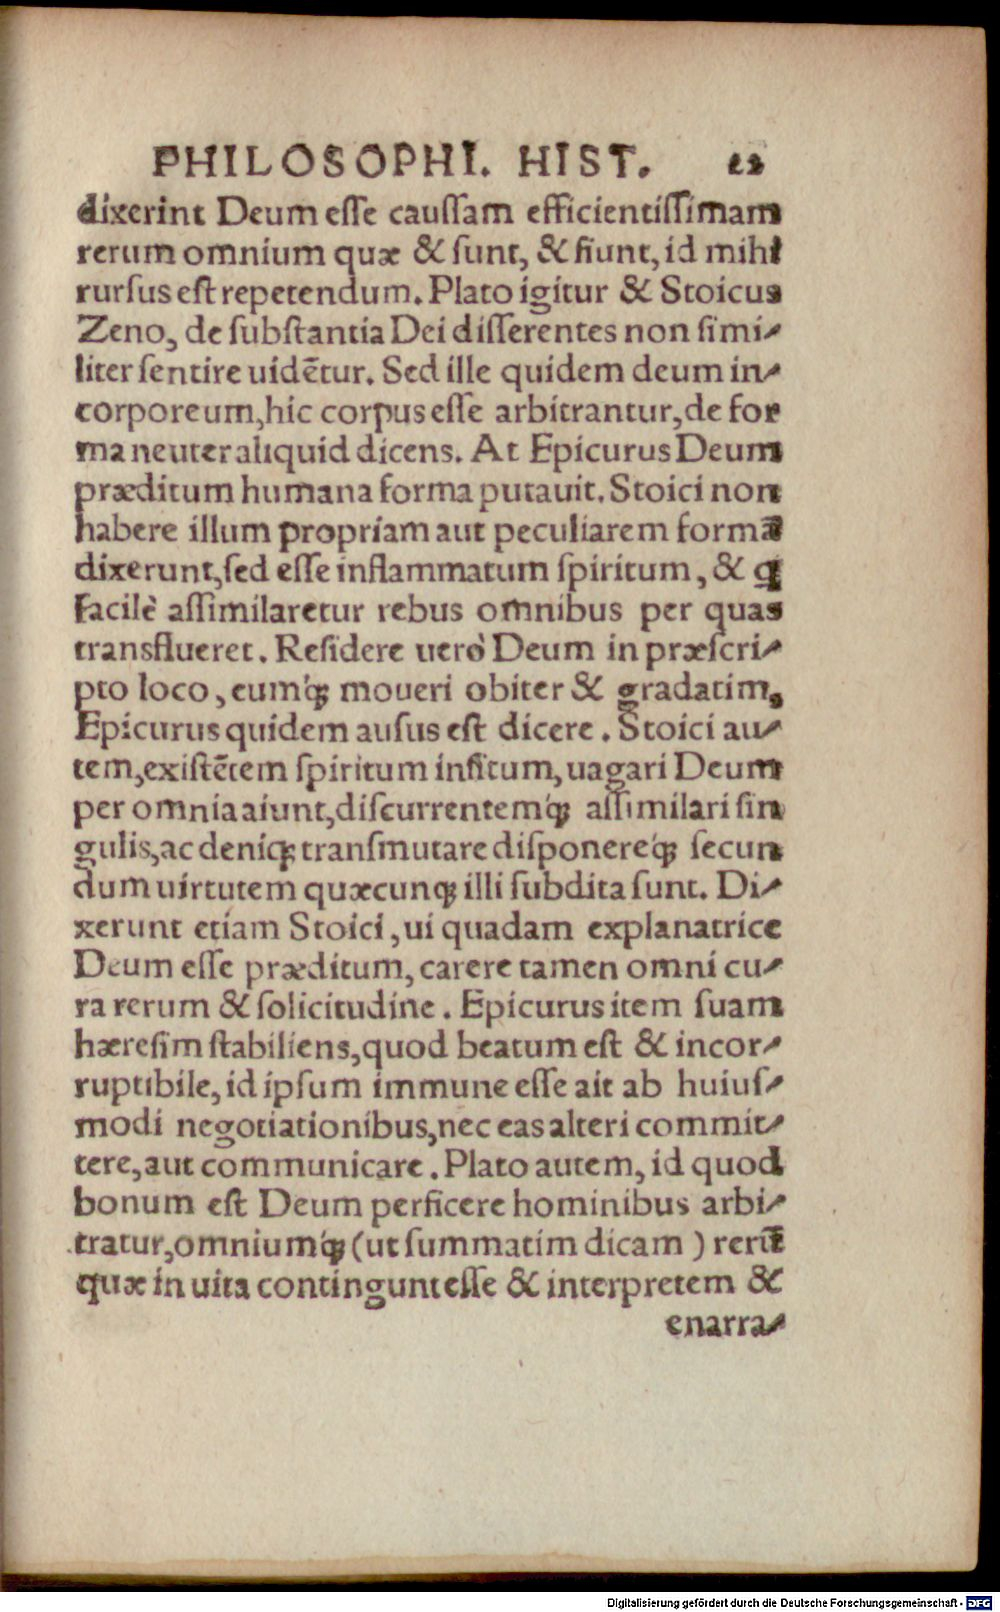 PHILOSOPHI. HIST. 22
dixerint Deum esse caussam efficientissimam
rerum omnium quæ & sunt, & fiunt, id mihi
rursus est repetendum. Plato igitur & Stoicus
Zeno, de substantia Dei disserentes non simi-
liter sentire uidẽtur. Sed ille quidem deum in-
corporeum, hic corpus esse arbitrantur, de for
ma neuter aliquid dicens. At Epicurus Deum
præditum humana forma putauit. Stoici non
habere illum propriam aut peculiarem formã
dixerunt, sed esse inflammatum spiritum, & ꝗ
facilè assimilaretur rebus omnibus per quas
transflueret. Residere uerò Deum in præscri-
pto loco, eumq́ꝫ moueri obiter & gradatim,
Epicurus quidem ausus est dicere. Stoici au-
tem, existẽtem spiritum insitum, uagari Deum
per omnia aiunt, discurrentemq́ꝫ assimilari sin
gulis, ac deniqꝫ transmutare disponereq́ꝫ secun
dum uirtutem quæcunqꝫ illi subdita sunt. Di-
xerunt etiam Stoici, ui quadam explanatrice
Deum esse præditum, carere tamen omni cu-
ra rerum & solicitudine. Epicurus item suam
hæresim stabiliens, quod beatum est & incor-
ruptibile, id ipsum immune esse ait ab huius-
modi negotiationibus, nec eas alteri commit-
tere, aut communicare. Plato autem, id quod
bonum est Deum perficere hominibus arbi-
tratur, omniumq́ꝫ (ut summatim dicam) rerũ
quæ in uita contingunt esse & interpretem &
enarra-
Digitalisierung gefördert durch die Deutsche Forschungsgemeinschaft - DFG